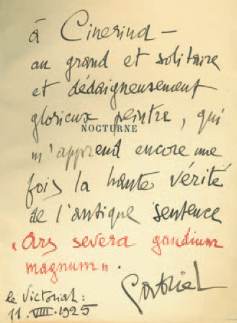 à Cinerina —
au grand et solitaire
et dédaigneusement
glorieux peintre, qui
NOCTURNE
m'apprend encore une
fois la haute vérité
de l'antique sentence
"Ars severa gaudium
magnum".
Le Vittoriale:
11. VIII. 1925